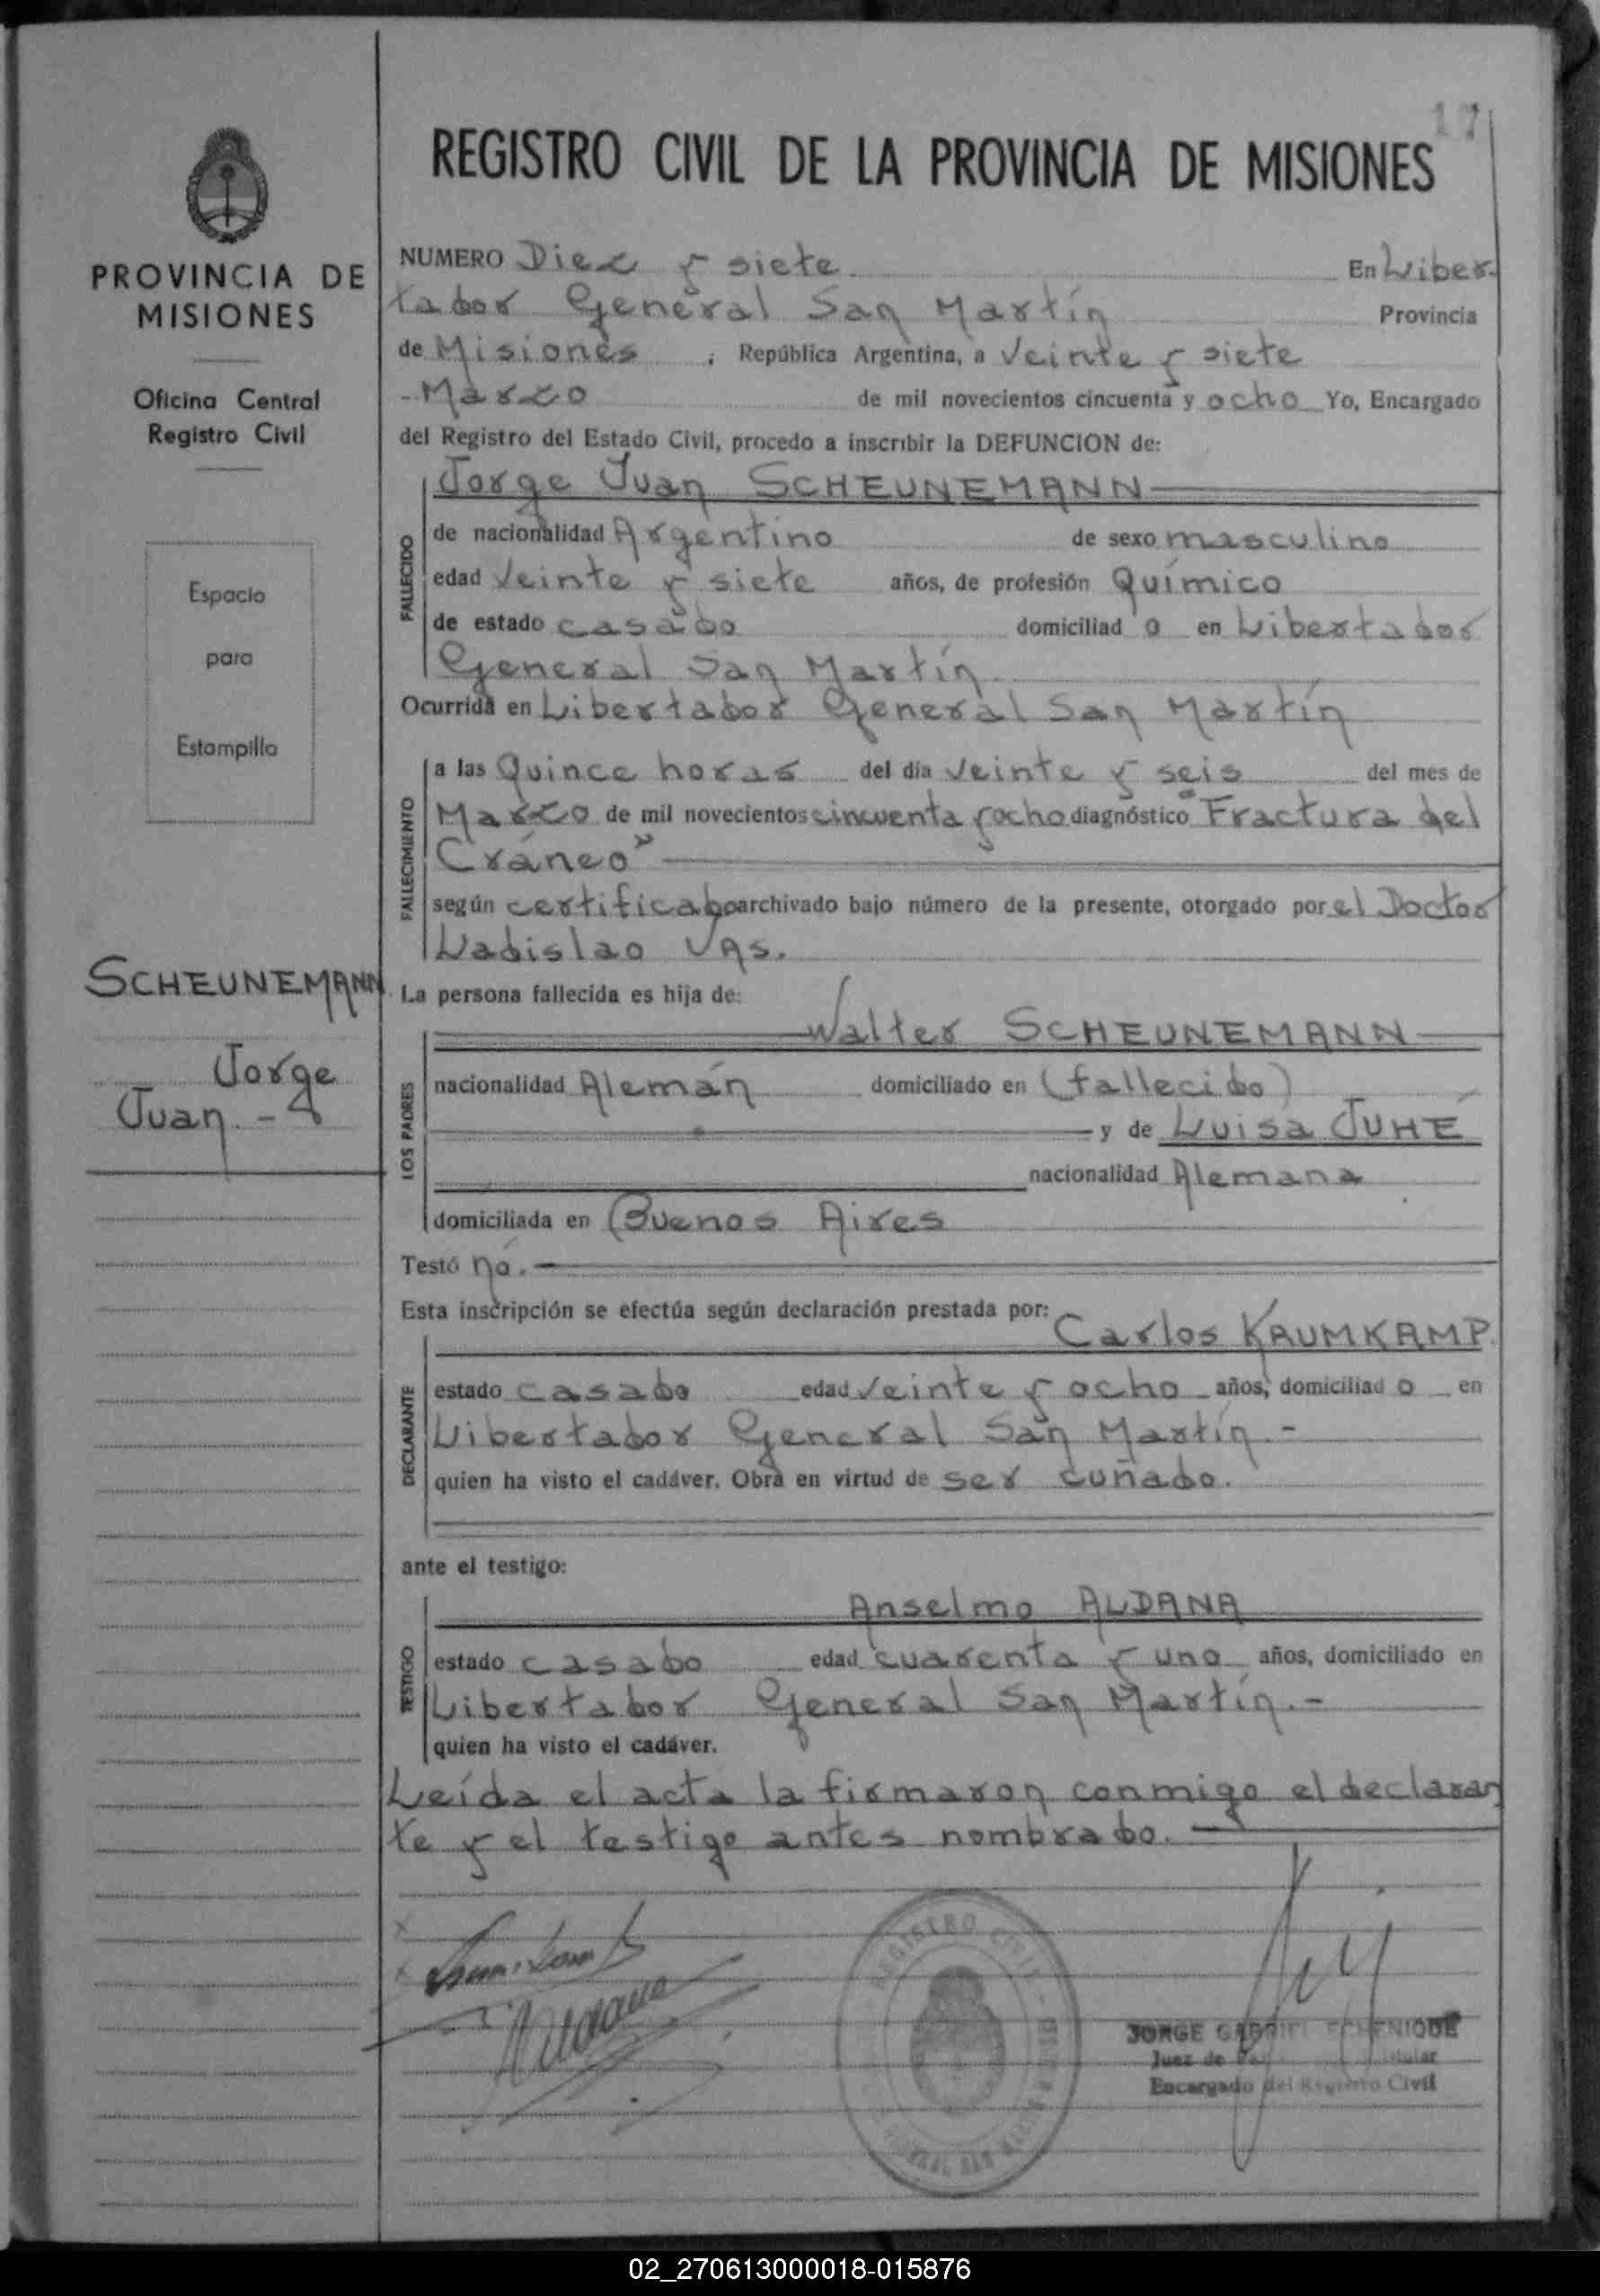 17
REGISTRO CIVIL DE LA PROVINCIA DE MISIONES
PROVINCIA DE
MISIONES
Oficina Central
Registro Civil
Espacio
para
Estampilla
SCHEUNEMANN
Jorge
Juan.-
NUMERO Diez y siete En Liber-
tador General San Martín Provincia
de Misiones , República Argentina, a Veinte y siete
-Marzo de mil novecientos cincuenta y ocho Yo, Encargado
del Registro del Estado Civil, procedo a inscribir la DEFUNCION de:
Jorge Juan SCHEUNEMANN
FALLECIDO
de nacionalidad Argentino de sexo masculino
edad Veinte y siete años, de profesión Químico
de estado casado domiciliad o en Libertador
General San Martín
Ocurrida en Libertador General San Martín
FALLECIMIENTO
a las Quince horas del día veinte y seis del mes de
Marzo de mil novecientos cincuenta y ocho diagnóstico "Fractura del
Cráneo"
según certificado archivado bajo número de la presente, otorgado por el Doctor
Ladislao
La persona fallecida es hija de:
LOS PADRES
Walter SCHEUNEMANN
nacionalidad Alemán domiciliado en (fallecido)
y de Luisa JUHÉ
nacionalidad Alemana
domiciliada en Buenos Aires
Testó nó.-
Esta inscripción se efectúa según declaración prestada por:
DECLARANTE
Carlos KAUMKAMP
estado casado edad veinte y ocho años, domiciliad o en
Libertador General San Martín.-
quien ha visto el cadáver. Obra en virtud de ser cuñado.
ante el testigo:
TESTIGO
Anselmo ALDANA
estado casado edad cuarenta y uno años, domiciliado en
Libertador General San Martín.-
quien ha visto el cadáver.
Leída el acta la firmaron conmigo el declaran
te y el testigo antes nombrado.
REGISTRO CIVIL
JORGE GABRIEL ECHENIQUE
Juez de Titular
Encargado del Registro Civil
02_270613000018-015876